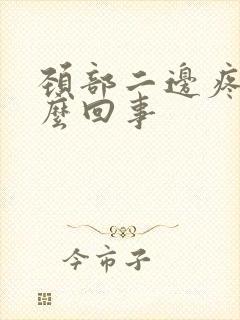 頚部二邊疼
麼回事
今市子